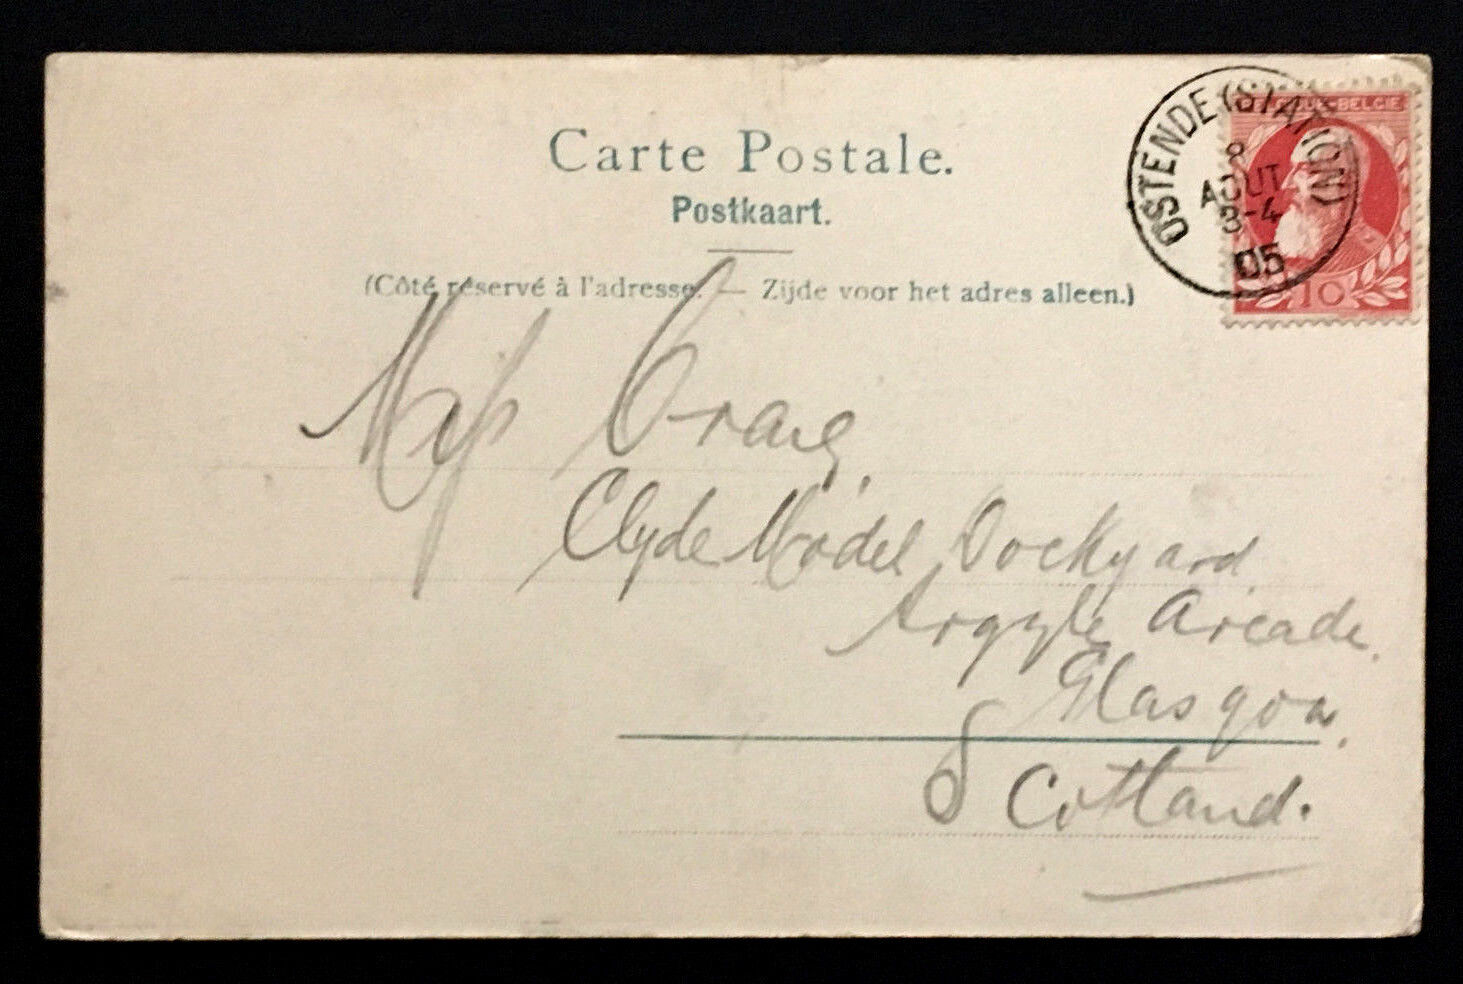 Carte Postale.
Postkaart.
(Côté réservé à l'adresse. — Zijde voor het adres alleen.)
OSTENDE (STATION)
8
AOUT
3-4
05
BELGIQUE-BELGIE
10
Miss Craig,
Clyde Model Dockyard
Argyle Arcade.
Glasgow.
Scotland.